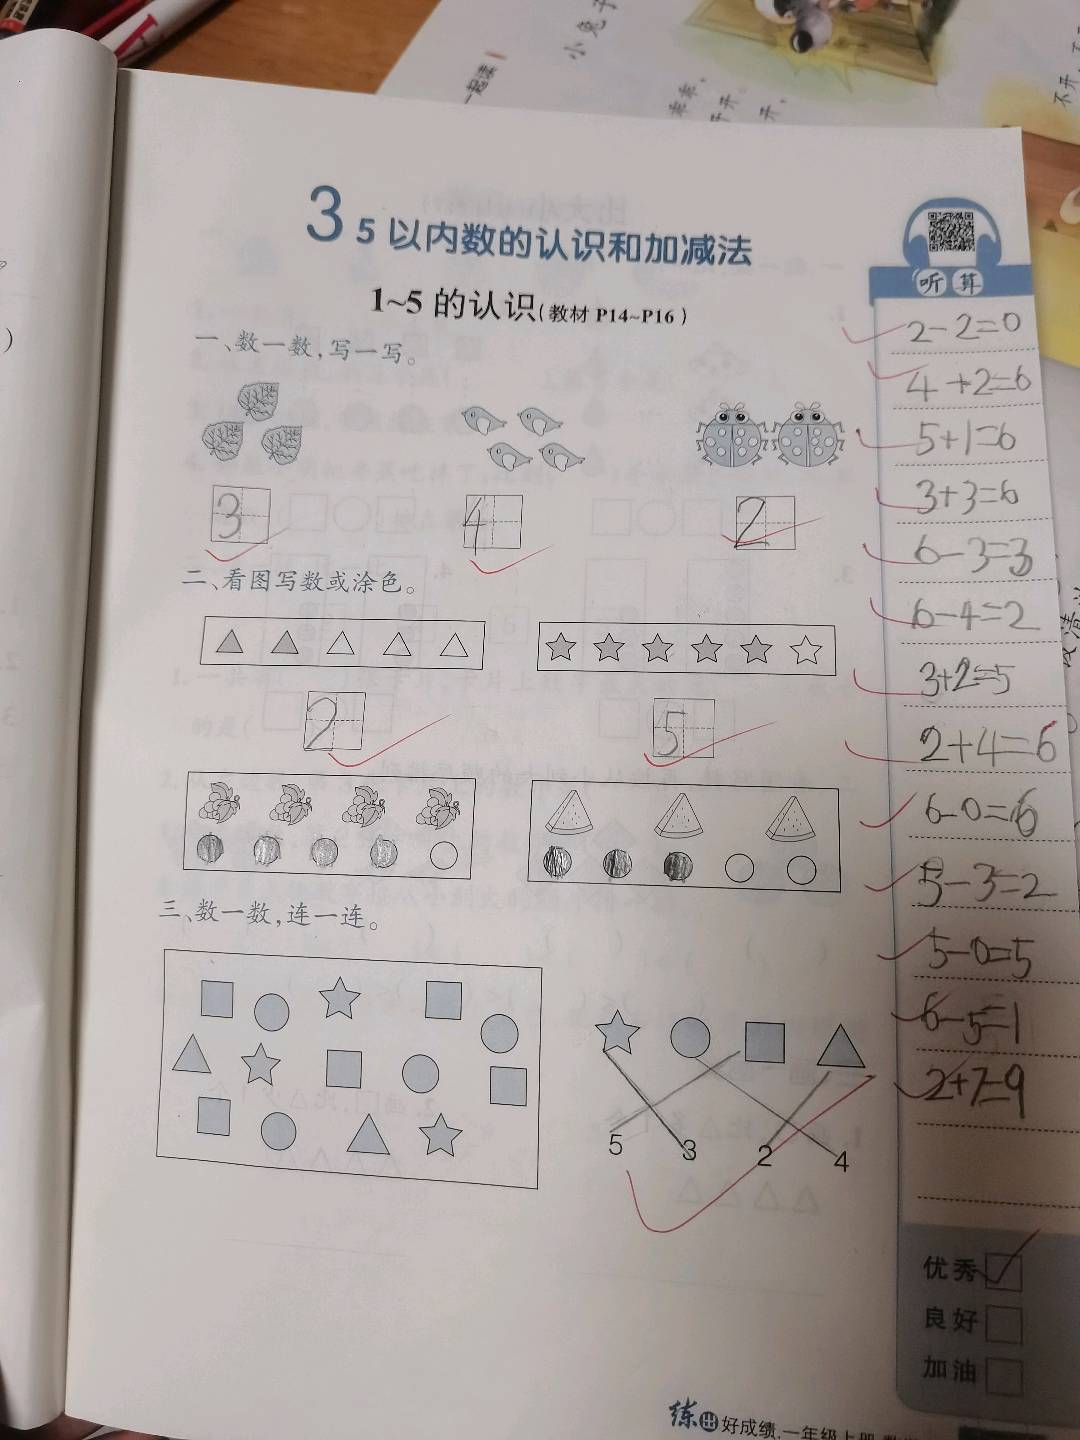 一起读
小兔子
乖乖，
开开，
开，
不开，不
3 5 以内数的认识和加减法
1~5 的认识(教材 P14~P16)
一、数一数，写一写。
3 4 2
二、看图写数或涂色。
2 5
三、数一数，连一连。
5 3 2 4
听算
2-2=0
4+2=6
5+1=6
3+3=6
6-3=3
6-4=2
3+2=5
2+4=6
6-0=6
5-3=2
5-0=5
6-5=1
2+7=9
优秀
良好
加油
练出好成绩.一年级上册